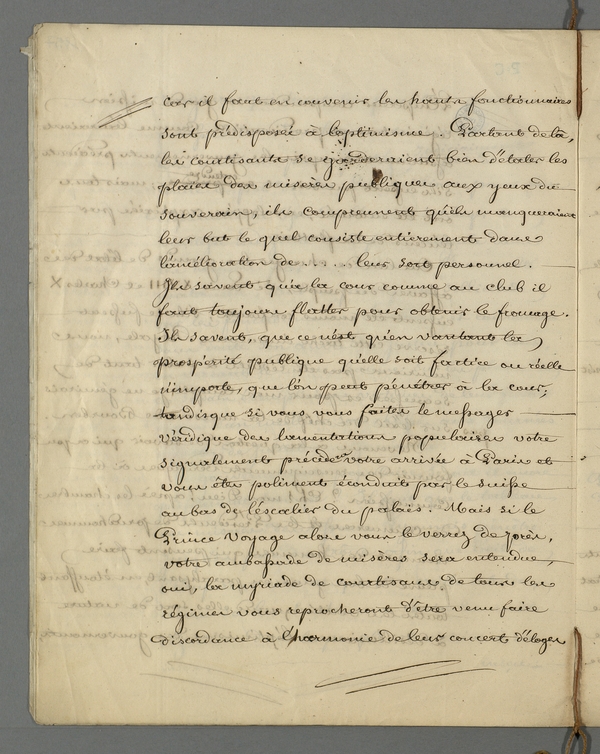 car il faut en convenir les hauts fonctionnaires
sont prédisposés à l'optimisme. Partant de là,
les courtisants se garderaient bien d'étaler les
plaies des misères publiques aux yeux du
souverain, ils comprennent qu'ils manqueraient
leur but le quel consiste entièrement dans
l'amélioration de ..... leur sort personnel.
Ils savent qu'à la cour comme au club il
faut toujours flatter pour obtenir le fromage.
Ils savent, que ce n'est qu'en vantant la
prospérité publique qu'elle soit factice ou réelle
n'importe, que l'on peut pénétrer à la cour;
tandisque si vous vous faites le messager
véridique des lamentations populaires votre
signalement précède votre arrivée à Paris et
vous êtes poliment éconduit par le suisse
au bas de l'éscalier du palais. Mais si le
Prince voyage alors vous le verrez de près,
votre ambassade de misères sera entendue,
oui, la myriade de courtisans de tous les
régimes vous reprocheront d'être venu faire
discordance à l'harmonie de leur concert d'éloges